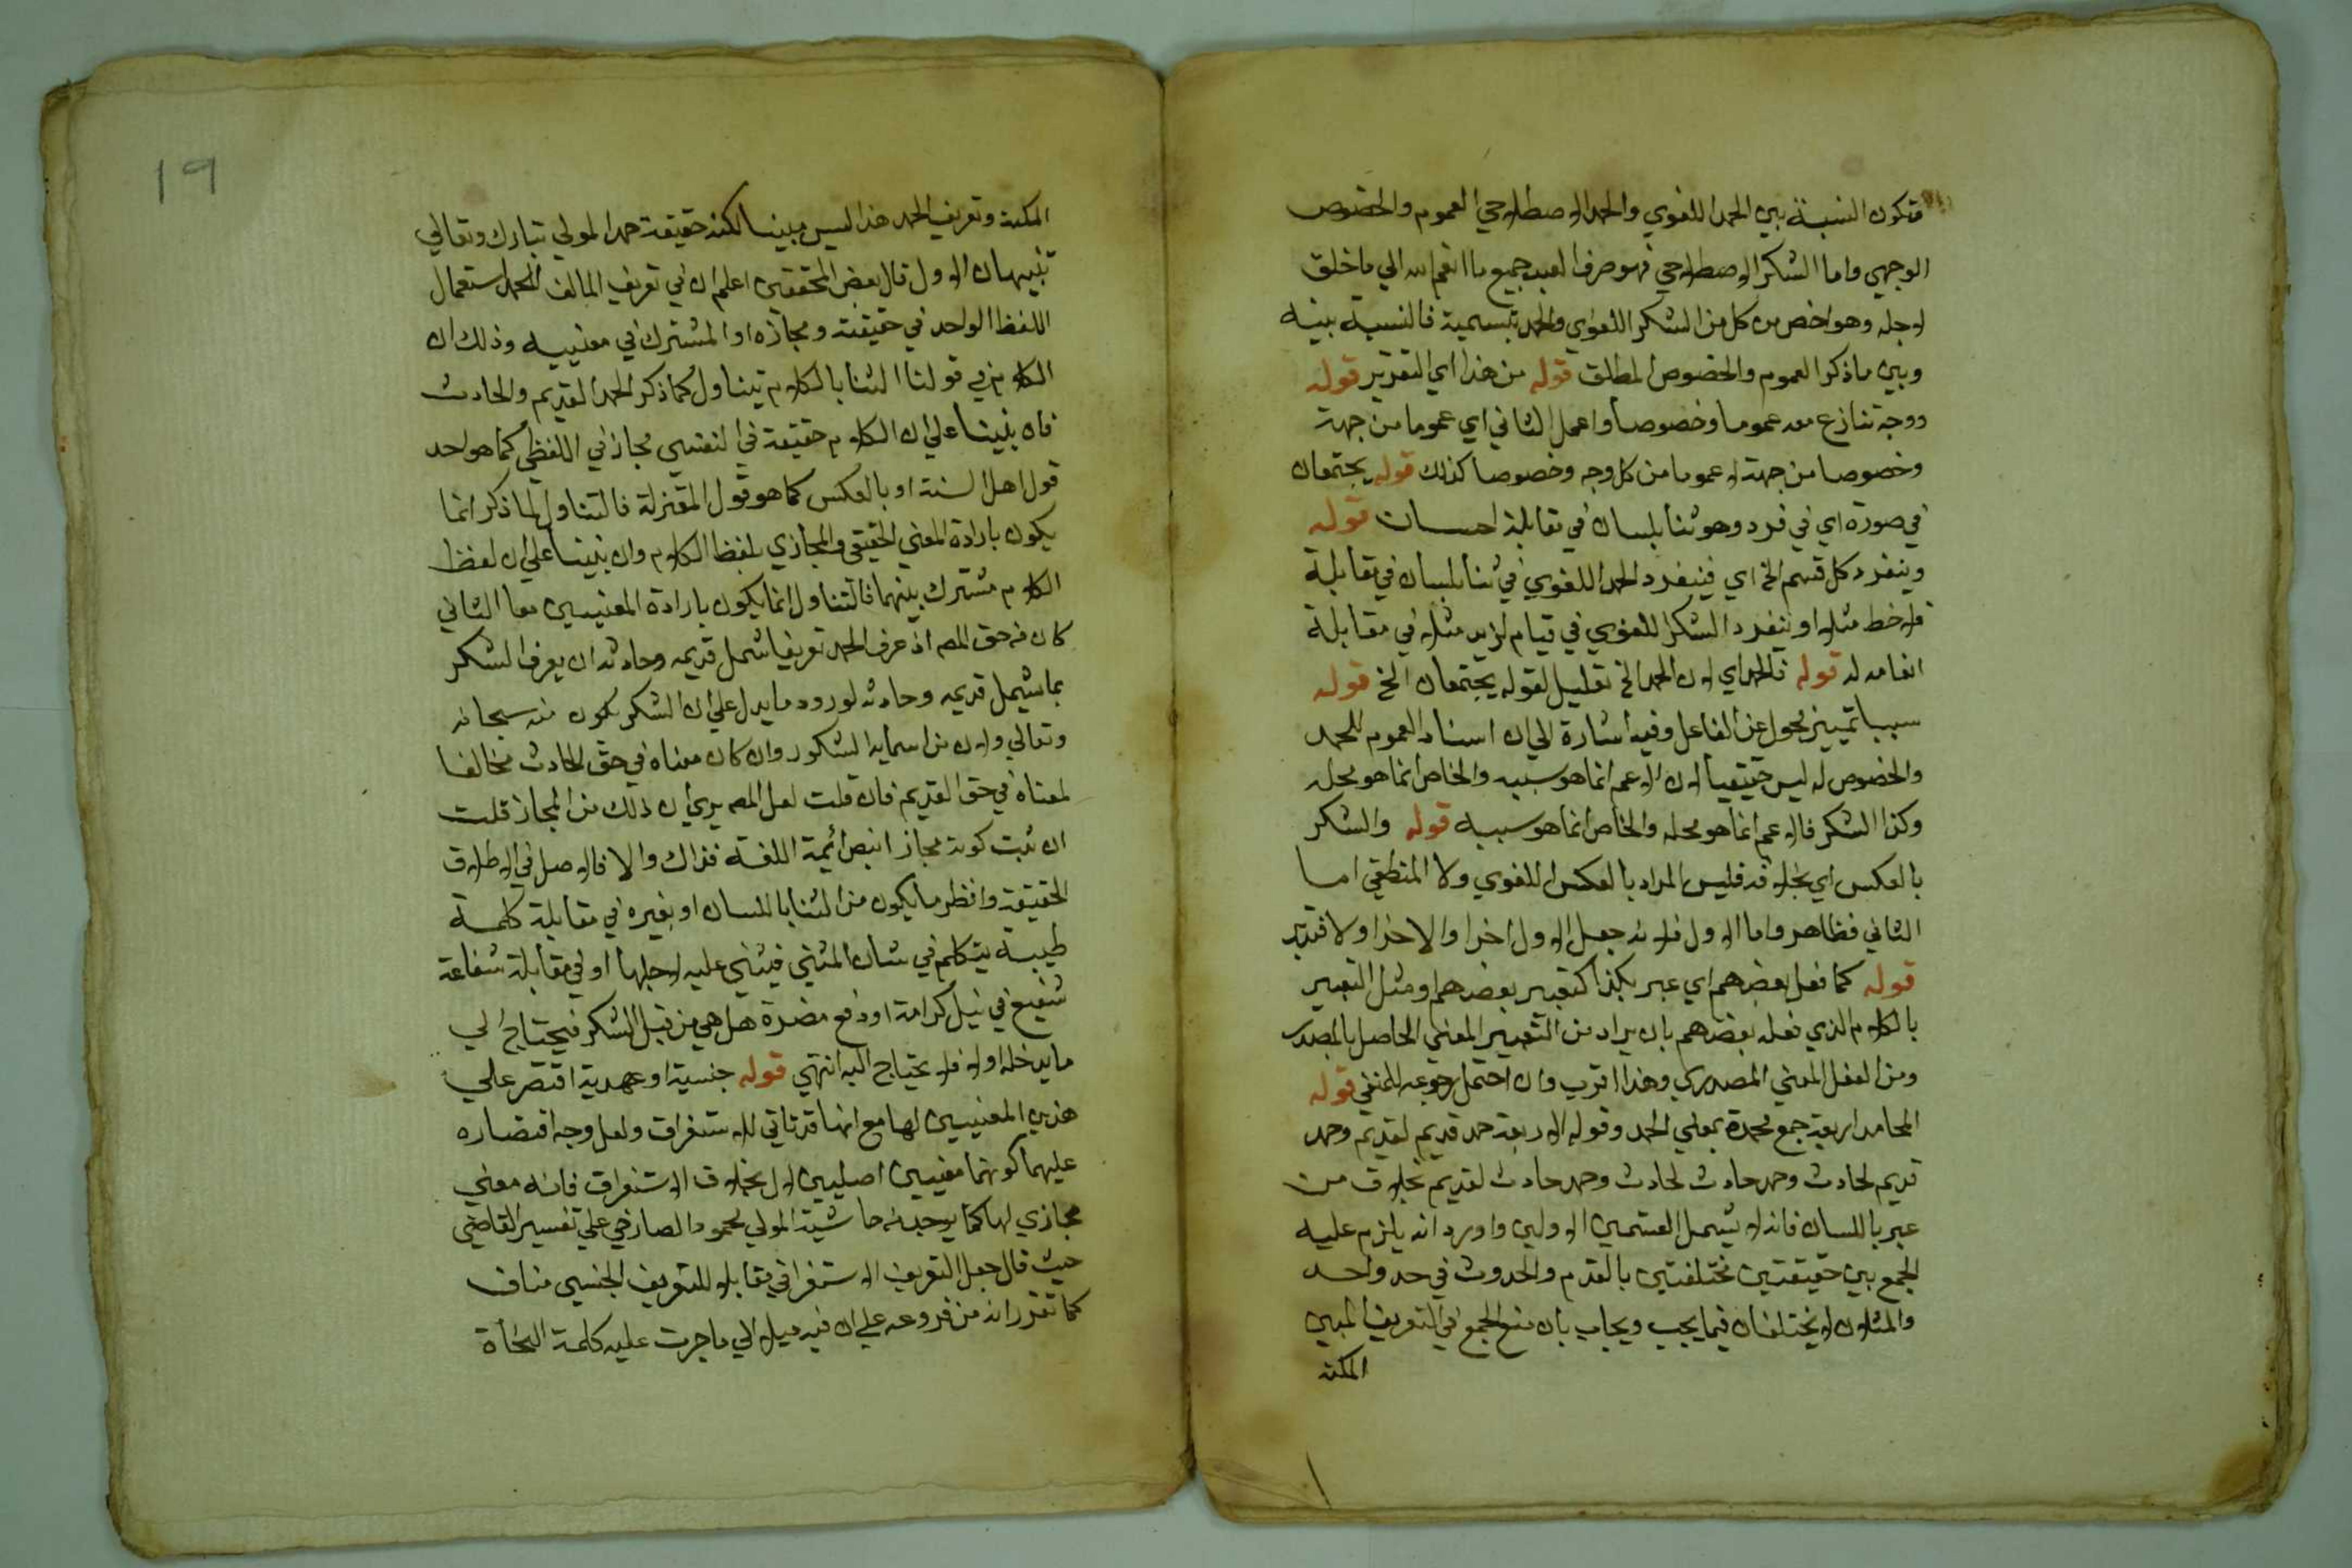 فتكون النسبة بين الحمد اللغوي والحمد الاصطلاحي العموم والخصوص
الوجهي واما الشكر الاصطلاحي فهو صرف العبد جميع ما انعم الله الي ما خلق
لاجله وهو اخص من كل من الشكر اللغوي والحمد بقسميه فالنسبة بينه
وبين ما ذكر العموم والخصوص المطلق قوله من هذا اي التقرير قوله
ووجه تنازع معه عموما وخصوصا واعمل الثاني اي عموما من جهة
وخصوصا من جهة لا عموما من كل وجه وخصوصا كذلك قوله يجتمعان
في صورة اي في فرد وهو ثنا بلسان في مقابلة احسان قوله
وينفرد كل قسم الخ اي فينفرد الحمد اللغوي في ثنا بلسان في مقابلة
مثلا او ينفرد الشكر اللغوي في قيام لزيد مثلا في مقابلة
انعامه له قوله فالحمد اي لان الحمد الخ تعليل لقوله يجتمعان الخ قوله
سببا تمييز محول عن الفاعل وفيه اشارة الي ان اسناد العموم للحمد
والخصوص له ليس حقيقيا لان الاعم انما هو سببه والخاص انما هو محله
وكذا الشكر فالاعم انما هو محله والخاص انما هو سببه قوله والشكر
بالعكس اي بخلافه فليس المراد بالعكس اللغوي ولا المنطقي اما
الثاني فظاهر واما الاول فلانه جعل الاول اخرا والاخر اولا فتدبر
قوله كما فعل بعضهم اي عبر بكذا كتعبير بعضهم او مثل التعبير
بالكلام الذي فعله بعضهم بان يراد من التعبير المعني الحاصل بالمصدر
ومن الفعل المعني المصدري وهذا اقرب وان احتمل رجوعه للمنفي قوله
المحامد اربعة جمع محمدة بمعني الحمد وقوله الاربعة حمد قديم لقديم وحمد
قديم لحادث وحمد حادث لحادث وحمد حادث لقديم بخلاف من
عبر باللسان فانه لا يشمل القسمين الاولين واورد انه يلزم عليه
الجمع بين حقيقتين مختلفتين بالقدم والحدوث في حد واحد
والمثلان لا يختلفان فيما يجب ويجاب بان منع الجمع في التعريف المبين
المكنه
١٩
المكنه وتعريف الحمد هذا ليس مبينا لكنه حقيقة حمد المولي تبارك وتعالي
تنبيهان الاول قال بعض المحققين اعلم ان في تعريف المؤلف للحمد استعمال
اللفظ الواحد في حقيقته ومجازه او المشترك في معنييه وذلك ان
الكلام في قولنا الثنا بالكلام يتناول كما ذكر الحمد القديم والحادث
فان بنينا علي ان الكلام حقيقة في النفسي مجاز في اللفظي كما هو احد
قول اهل السنة او بالعكس كما هو قول المعتزلة فالتناول لما ذكر انما
يكون بارادة المعني الحقيقي والمجازي بلفظ الكلام وان بنينا علي ان لفظ
الكلام مشترك بينهما فالتناول انما يكون بارادة المعنيين معا الثاني
كان من حق المصه اذ عرف الحمد تعريفا شمل قديمه وحادثه ان يعرف الشكر
بما يشمل قديمه وحادثه لورود ما يدل علي ان الشكر يكون منه سبحانه
وتعالي ولان من اسمايه الشكور وان كان معناه في حق الحادث مخالفا
لمعناه في حق القديم فان قلت لعل المصه يري ان ذلك من المجاز قلت
ان ثبت كونه مجازا بنص ائمة اللغة فذاك والا فالاصل في الاطلاق
الحقيقة وانظر ما يكون من الثنا باللسان او بغيره في مقابلة كلمة
طيبة يتكلم في شان المثني فيثني عليه لاجلها او في مقابلة شفاعة
شفيع في نيل كرامة او دفع مضرة هل هي من قبل الشكر فيحتاج الي
ما يدخله اولا فلا يحتاج اليه انتهي قوله جنسية او عهدية اقتصر علي
هذين المعنيين لها مع انها قد تاتي للاستغراق ولعل وجه اقتصاره
عليهما كونهما معنيين اصليين لال بخلاف الاستغراق فانه معني
مجازي لها كما يوجد من حاشية المولي محمود الصارخي علي تفسير القاضي
حيث قال جعل التعريف الاستغراقي مقابلا للتعريف الجنسي مناف
كما تقرر انه من فروعه علي ان فيه ميلا الي ما جرت عليه كلمة النحاة